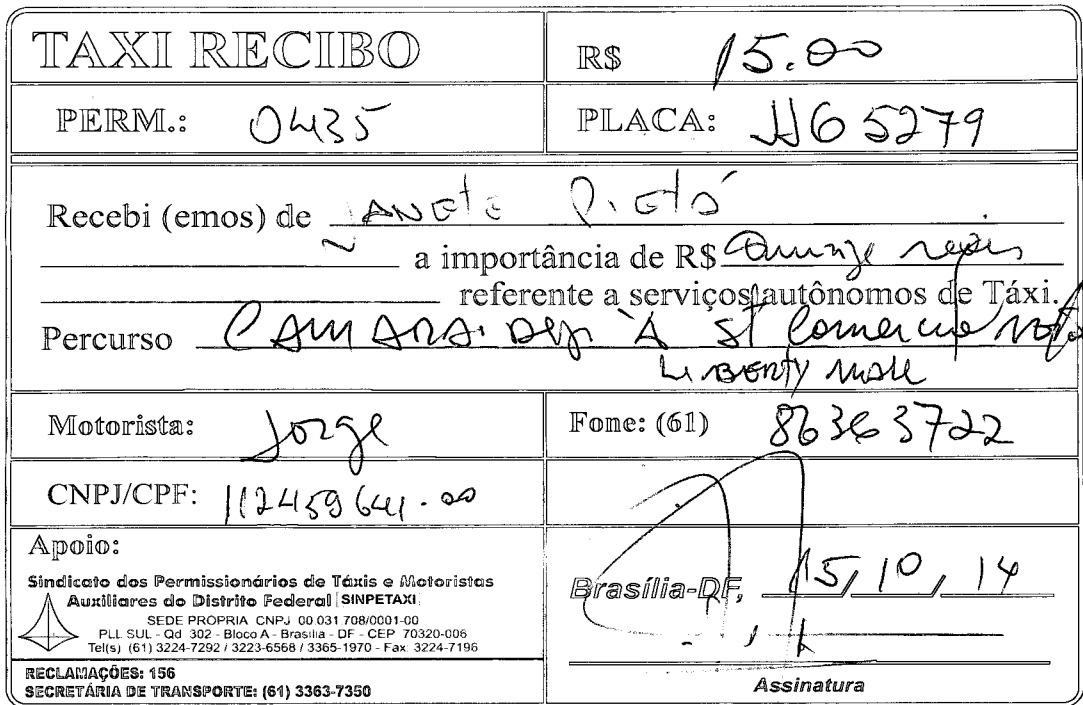 TAXI RECIBO
R$ 15.00
PERM.: 0435
PLACA: JJG 5279
Recebi (emos) de JANETE PIETÁ
a importância de R$ Quinze reais
referente a serviços autônomos de Táxi.
Percurso CAMARA. Dep. À St Comercial Norte
LIBERTY MALL
Motorista: Jorge
Fone: (61) 86363722
CNPJ/CPF: 112459641.00
Apoio:
Sindicato dos Permissionários de Táxis e Motoristas
Auxiliares do Distrito Federal SINPETAXI
SEDE PRÓPRIA CNPJ 00 031 708/0001-00
PLL SUL - Qd 302 - Bloco A - Brasília - DF - CEP 70320-006
Tel(s) (61) 3224-7292 / 3223-6568 / 3365-1970 - Fax: 3224-7196
Brasília-DF, 15/10/14
RECLAMAÇÕES: 156
SECRETÁRIA DE TRANSPORTE: (61) 3363-7350
Assinatura